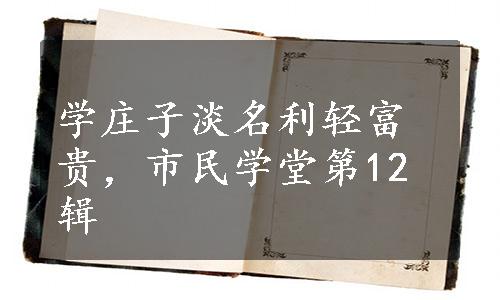 学庄子淡名利轻富
贵，市民学堂第12
辑